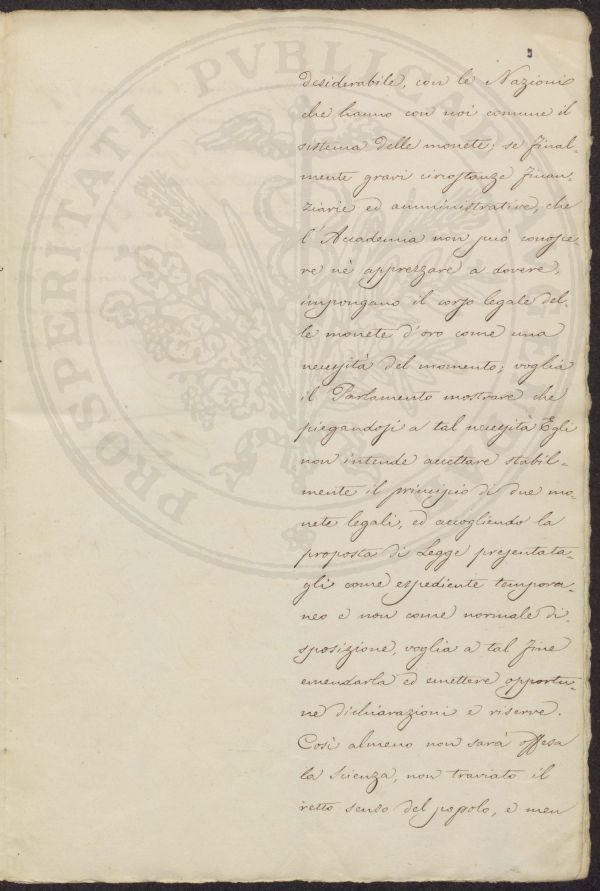 desiderabile, con le Nazioni
che hanno con noi comune il
sistema delle monete; se final-
mente gravi circostanze finan-
ziarie ed amministrative, che
l'Accademia non può conosce-
re nè apprezzare a dovere,
impongano il corso legale del-
le monete d'oro come una
necessità del momento; voglia
il Parlamento mostrare che
piegandosi a tal necessità Egli
non intende accettare stabil-
mente il principio di due mo-
nete legali, ed accogliendo la
proposta di Legge presentata-
gli come espediente tempora-
neo e non come normale di-
sposizione, voglia a tal fine
emendarla ed emettere opportu-
ne dichiarazioni e riserve.
Così almeno non sarà offesa
la Scienza, non traviato il
retto senso del popolo, e men
PROSPERITATI PVBLICAE